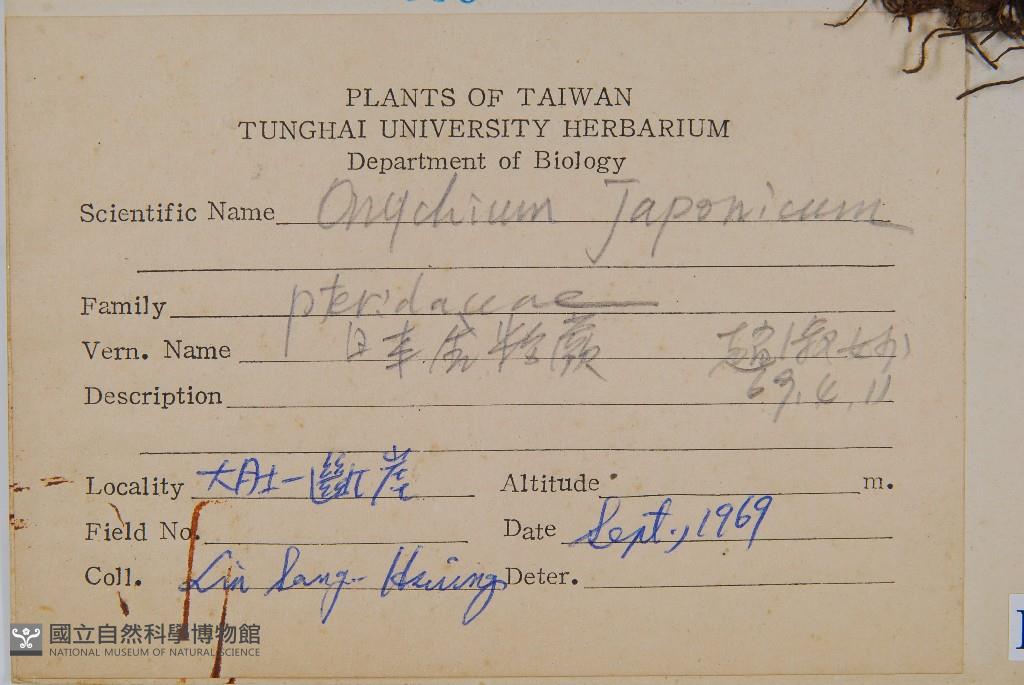 PLANTS OF TAIWAN
TUNGHAI UNIVERSITY HERBARIUM
Department of Biology
Scientific Name Onychium Japonicum
Family pteridaceae
Vern. Name 日本金粉蕨 趙淑妙
Description 69.4.11
Locality 大肚一斷崖 Altitude m.
Field No. Date Sept., 1969
Coll. Lin Sang-Hsiung Deter.
國立自然科學博物館
NATIONAL MUSEUM OF NATURAL SCIENCE